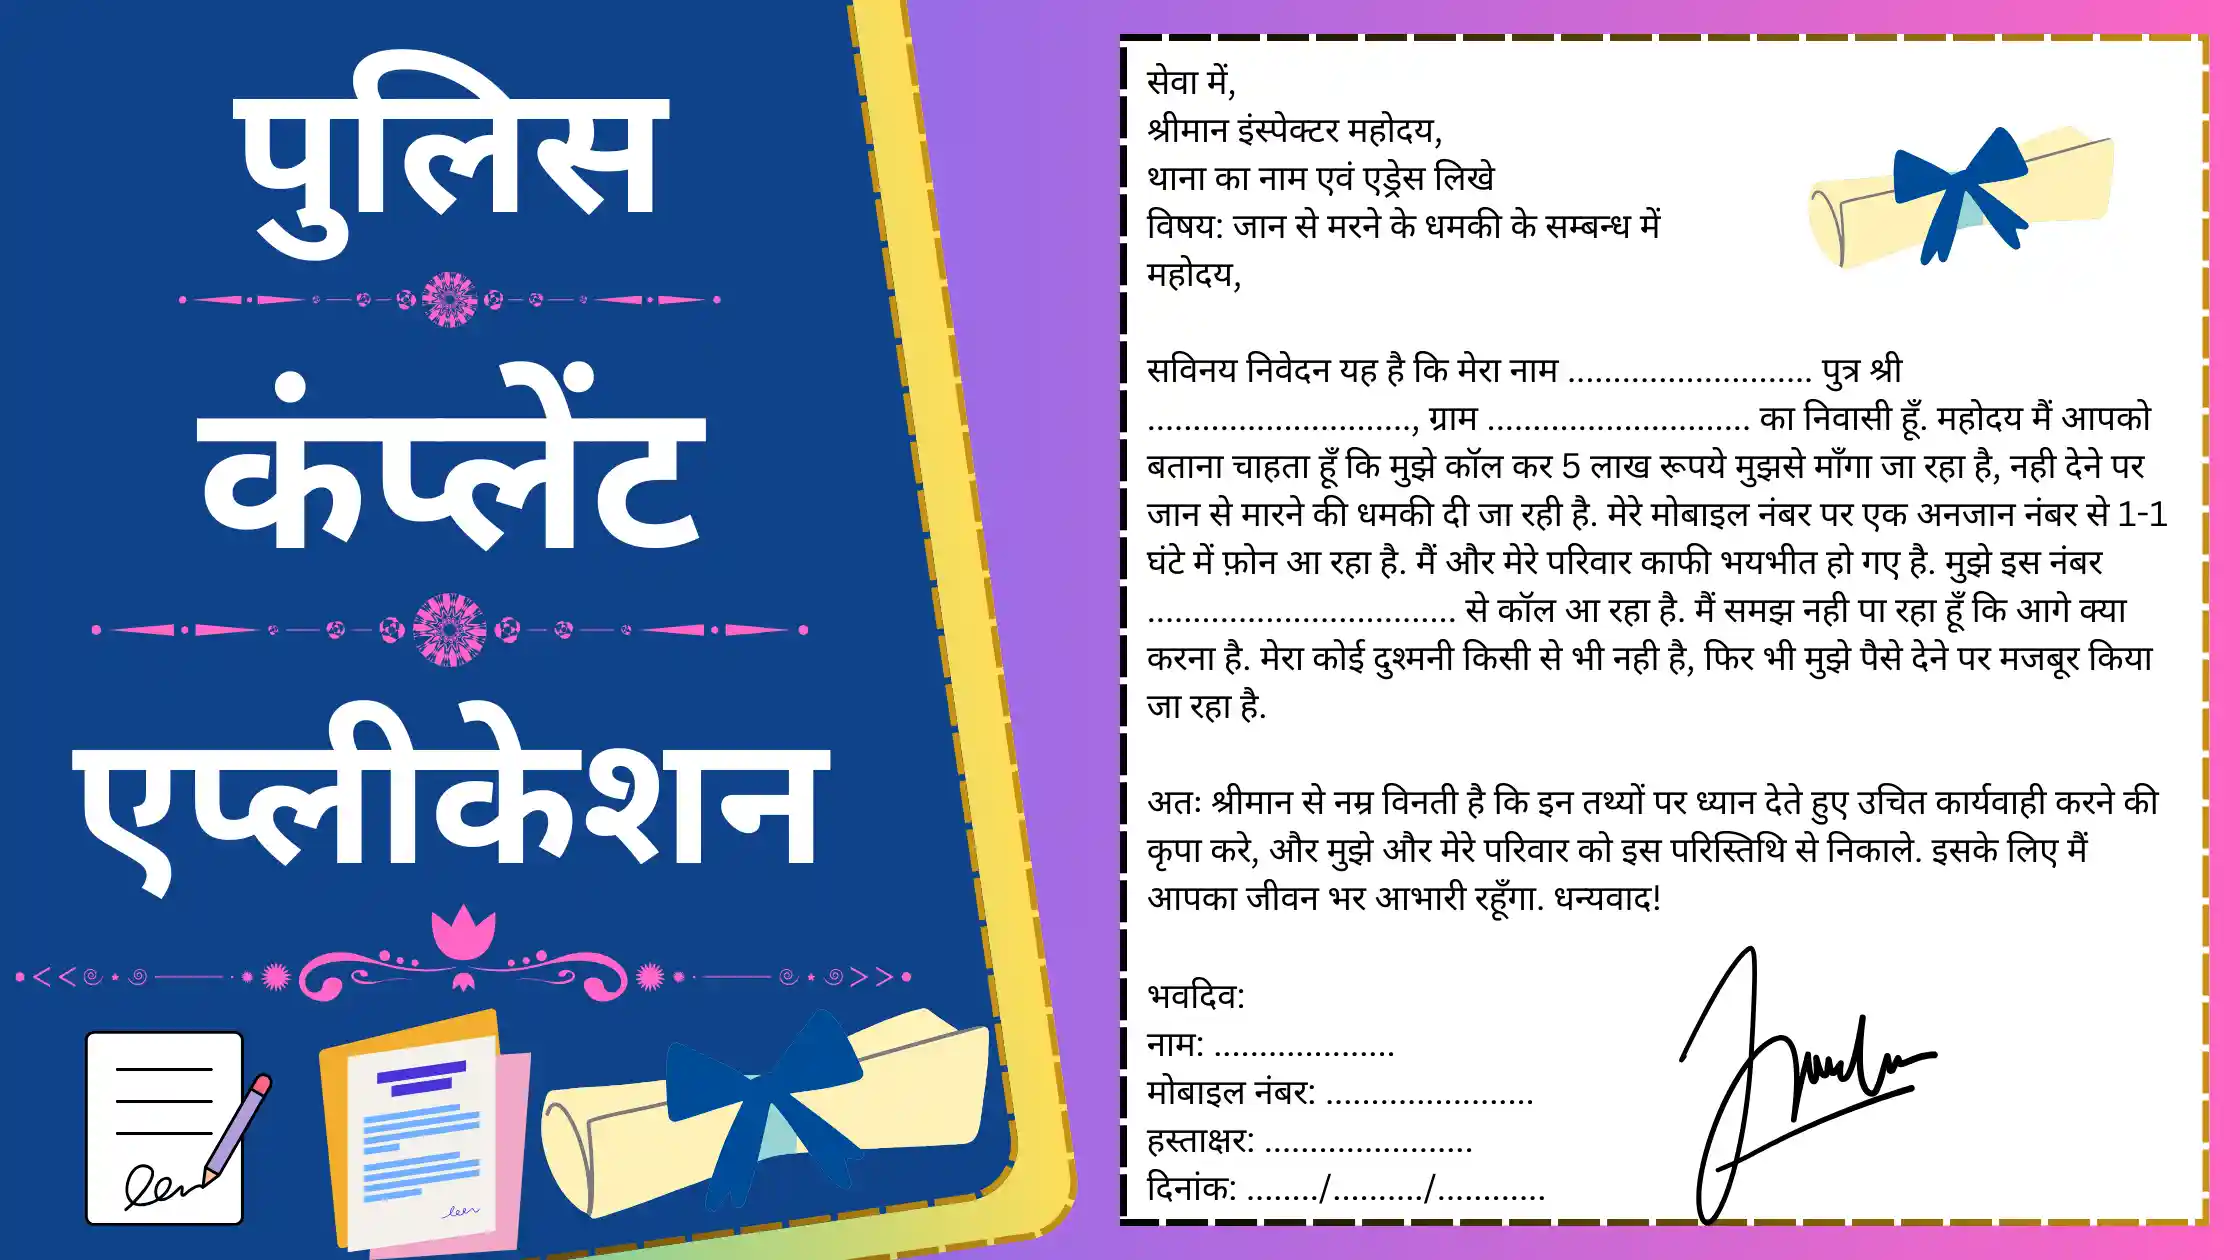 पुलिस
कंप्लेंट
एप्लीकेशन
सेवा में,
श्रीमान इंस्पेक्टर महोदय,
थाना का नाम एवं एड्रेस लिखे
विषय: जान से मरने के धमकी के सम्बन्ध में
महोदय,
सविनय निवेदन यह है कि मेरा नाम ........................... पुत्र श्री
............................., ग्राम ............................. का निवासी हूँ. महोदय मैं आपको
बताना चाहता हूँ कि मुझे कॉल कर 5 लाख रूपये मुझसे माँगा जा रहा है, नही देने पर
जान से मारने की धमकी दी जा रही है. मेरे मोबाइल नंबर पर एक अनजान नंबर से 1-1
घंटे में फ़ोन आ रहा है. मैं और मेरे परिवार काफी भयभीत हो गए है. मुझे इस नंबर
.................................. से कॉल आ रहा है. मैं समझ नही पा रहा हूँ कि आगे क्या
करना है. मेरा कोई दुश्मनी किसी से भी नही है, फिर भी मुझे पैसे देने पर मजबूर किया
जा रहा है.
अतः श्रीमान से नम्र विनती है कि इन तथ्यों पर ध्यान देते हुए उचित कार्यवाही करने की
कृपा करे, और मुझे और मेरे परिवार को इस परिस्तिथि से निकाले. इसके लिए मैं
आपका जीवन भर आभारी रहूँगा. धन्यवाद!
भवदिव:
नाम: ....................
मोबाइल नंबर: .......................
हस्ताक्षर: .......................
दिनांक: ......../........../............